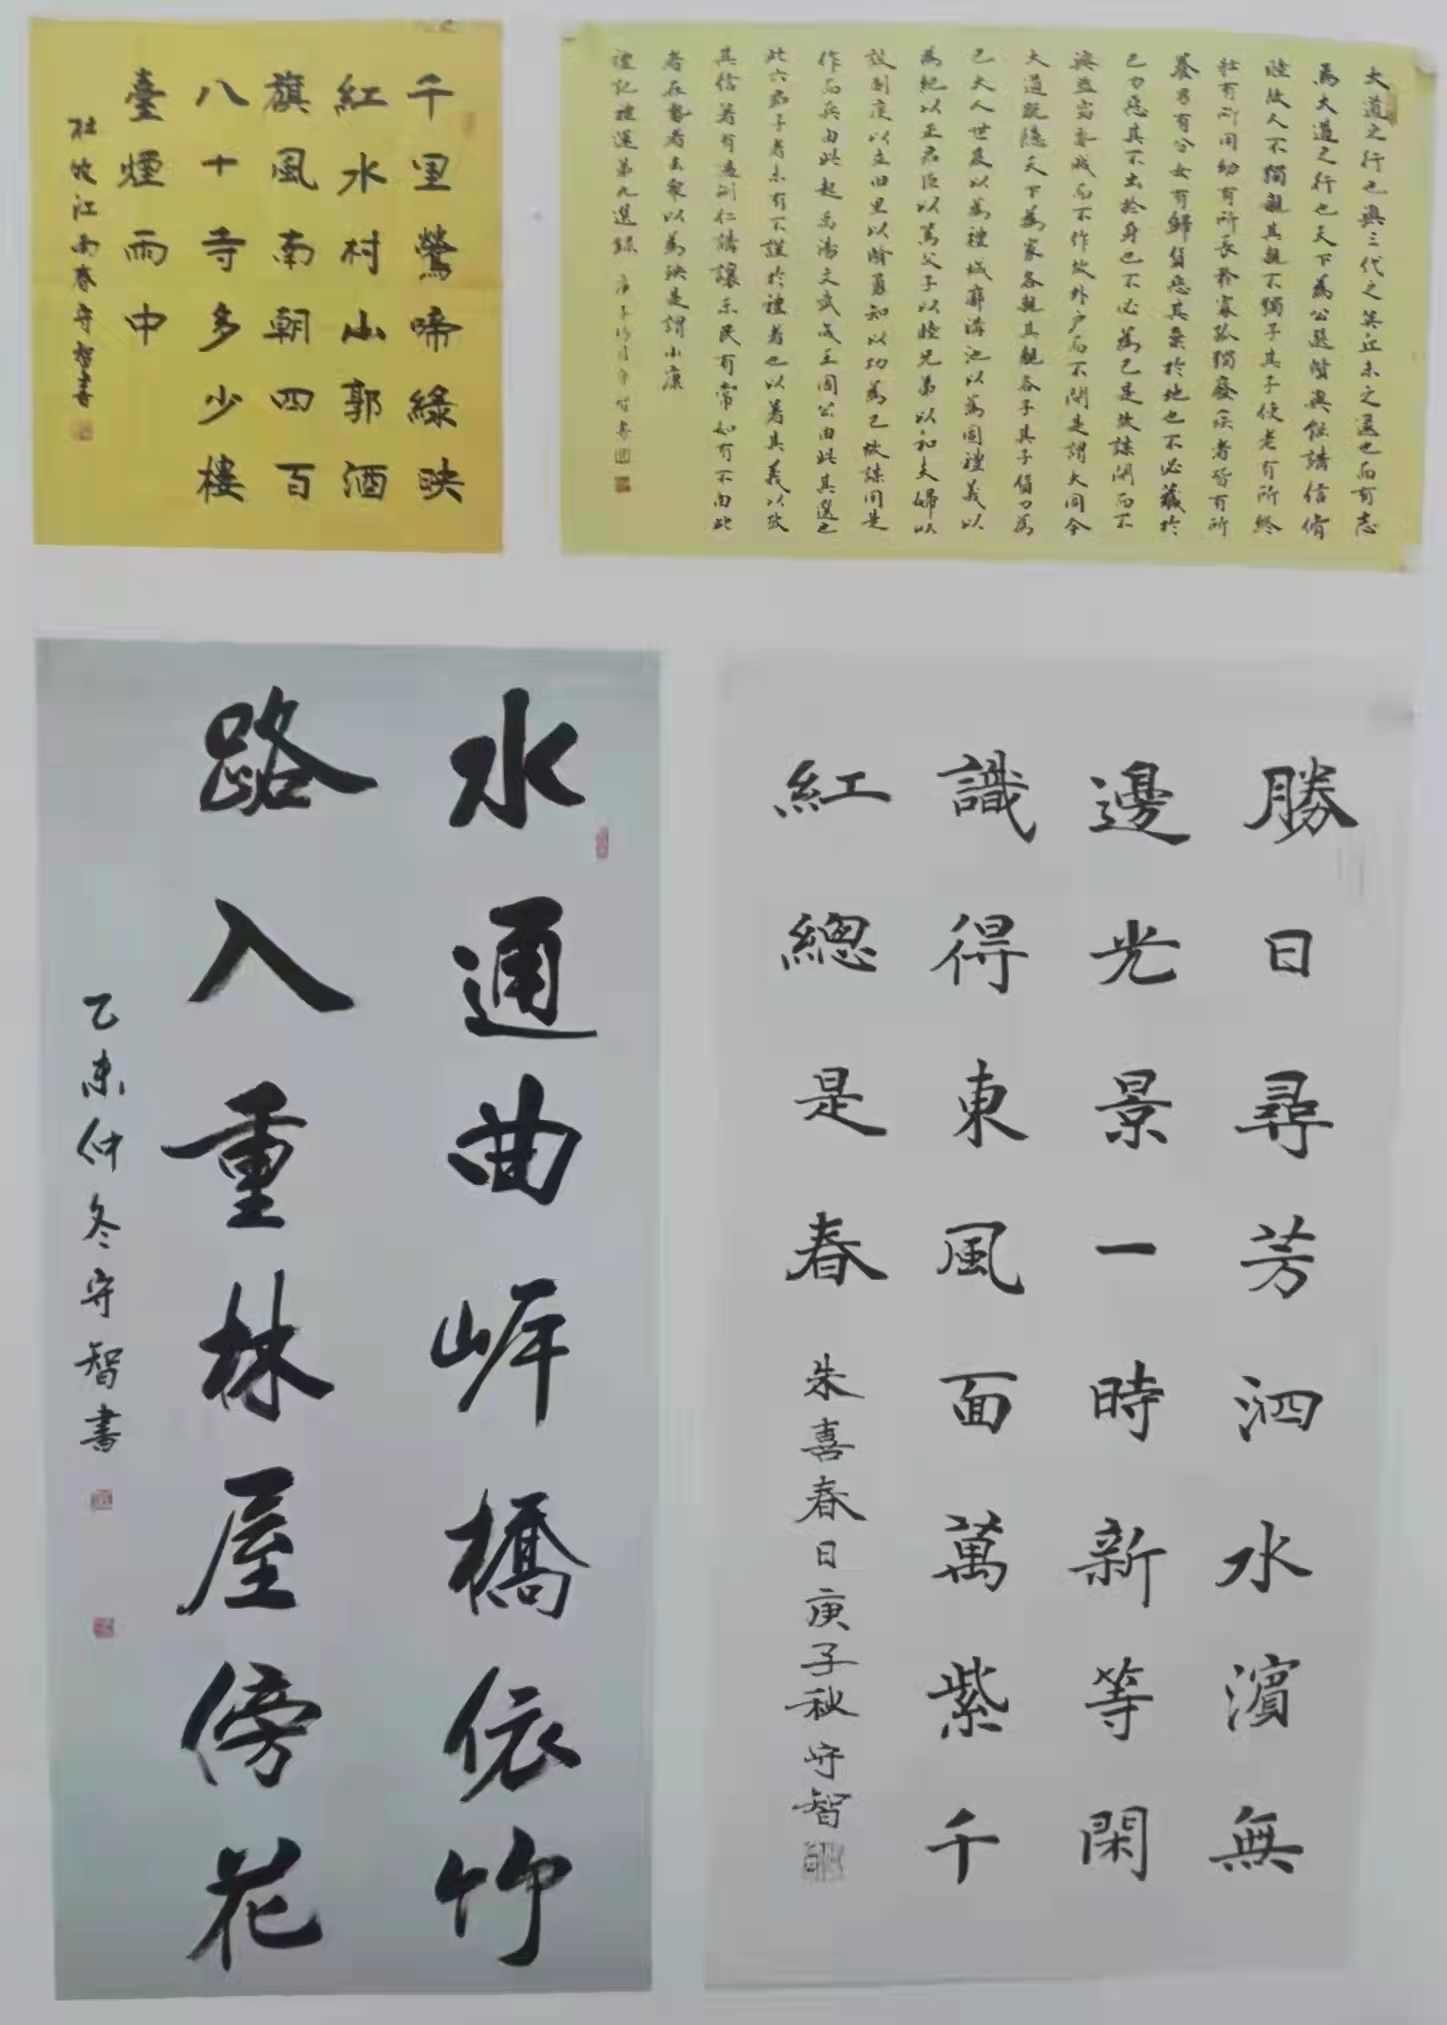 千里鶯啼綠映
紅水村山郭酒
旗風南朝四百
八十寺多少樓
臺煙雨中
杜牧江南春守智書
大道之行也與三代之英丘未之逮也而有志
焉大道之行也天下為公選賢與能講信脩
睦故人不獨親其親不獨子其子使老有所終
壯有所用幼有所長矜寡孤獨廢疾者皆有所
養男有分女有歸貨惡其棄於地也不必藏於
己力惡其不出於身也不必為己是故謀閉而不
興盜竊亂賊而不作故外戶而不閉是謂大同今
大道既隱天下為家各親其親各子其子貨力為
己大人世及以為禮城郭溝池以為固禮義以
為紀以正君臣以篤父子以睦兄弟以和夫婦以
設制度以立田里以賢勇知以功為己故謀用是
作而兵由此起禹湯文武成王周公由此其選也
此六君子者未有不謹於禮者也以著其義以考
其信著有過刑仁講讓示民有常如有不由此
者在埶者去眾以為殃是謂小康
禮記禮運第九選錄 庚子月守智書
水通曲岸橋依竹
路入重林屋傍花
乙未仲冬守智書
勝日尋芳泗水濱無
邊光景一時新等閑
識得東風面萬紫千
紅總是春 朱喜春日庚子秋守智